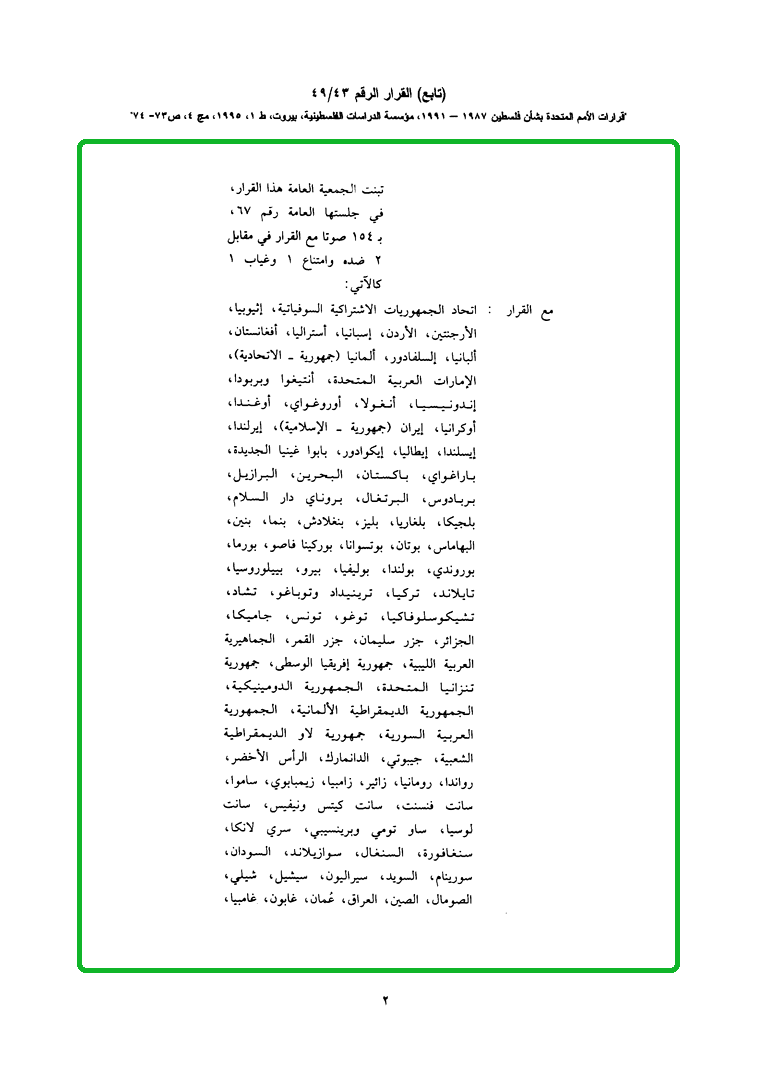 (تابع) القرار الرقم ٤٩/٤٣
"قرارات الأمم المتحدة بشأن فلسطين ١٩٨٧ — ١٩٩١، مؤسسة الدراسات الفلسطينية، بيروت، ط ١، ١٩٩٥، مج ٤، ص٧٣- ٧٤"
تبنت الجمعية العامة هذا القرار،
في جلستها العامة رقم ٦٧،
بـ ١٥٤ صوتا مع القرار في مقابل
٢ ضده وامتناع ١ وغياب ١
كالآتي:
مع القرار : اتحاد الجمهوريات الاشتراكية السوفياتية، إثيوبيا،
الأرجنتين، الأردن، إسبانيا، أستراليا، أفغانستان،
ألبانيا، إلسلفادور، ألمانيا (جمهورية ـ الاتحادية)،
الإمارات العربية المتحدة، أنتيغوا وبربودا،
إندونيسيا، أنغولا، أوروغواي، أوغندا،
أوكرانيا، إيران (جمهورية ـ الإسلامية)، إيرلندا،
إيسلندا، إيطاليا، إيكوادور، بابوا غينيا الجديدة،
باراغواي، باكستان، البحرين، البرازيل،
بربادوس، البرتغال، بروناي دار السلام،
بلجيكا، بلغاريا، بليز، بنغلادش، بنما، بنين،
البهاماس، بوتان، بوتسوانا، بوركينا فاصو، بورما،
بوروندي، بولندا، بوليفيا، بيرو، بييلوروسيا،
تايلاند، تركيا، ترينيداد وتوباغو، تشاد،
تشيكوسلوفاكيا، توغو، تونس، جاميكا،
الجزائر، جزر سليمان، جزر القمر، الجماهيرية
العربية الليبية، جمهورية إفريقيا الوسطى، جمهورية
تنزانيا المتحدة، الجمهورية الدومينيكية،
الجمهورية الديمقراطية الألمانية، الجمهورية
العربية السورية، جمهورية لاو الديمقراطية
الشعبية، جيبوتي، الدانمارك، الرأس الأخضر،
رواندا، رومانيا، زائير، زامبيا، زيمبابوي، ساموا،
سانت فنسنت، سانت كيتس ونيفيس، سانت
لوسيا، ساو تومي وبرينسيبي، سري لانكا،
سنغافورة، السنغال، سوازيلاند، السودان،
سورينام، السويد، سيراليون، سيشيل، شيلي،
الصومال، الصين، العراق، عُمان، غابون، غامبيا،
٢